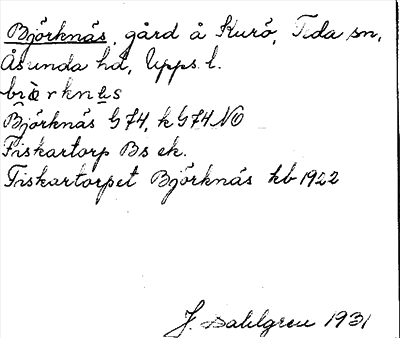 Björknäs, gård å Kurö, Tida sn,
Åsunda hd, Upps. l.
Björknäs G 74, k G 74 NO
Fiskartorp Bs ek.
Fiskartorpet Björknäs kb 1922
J. Dahlgren 1931